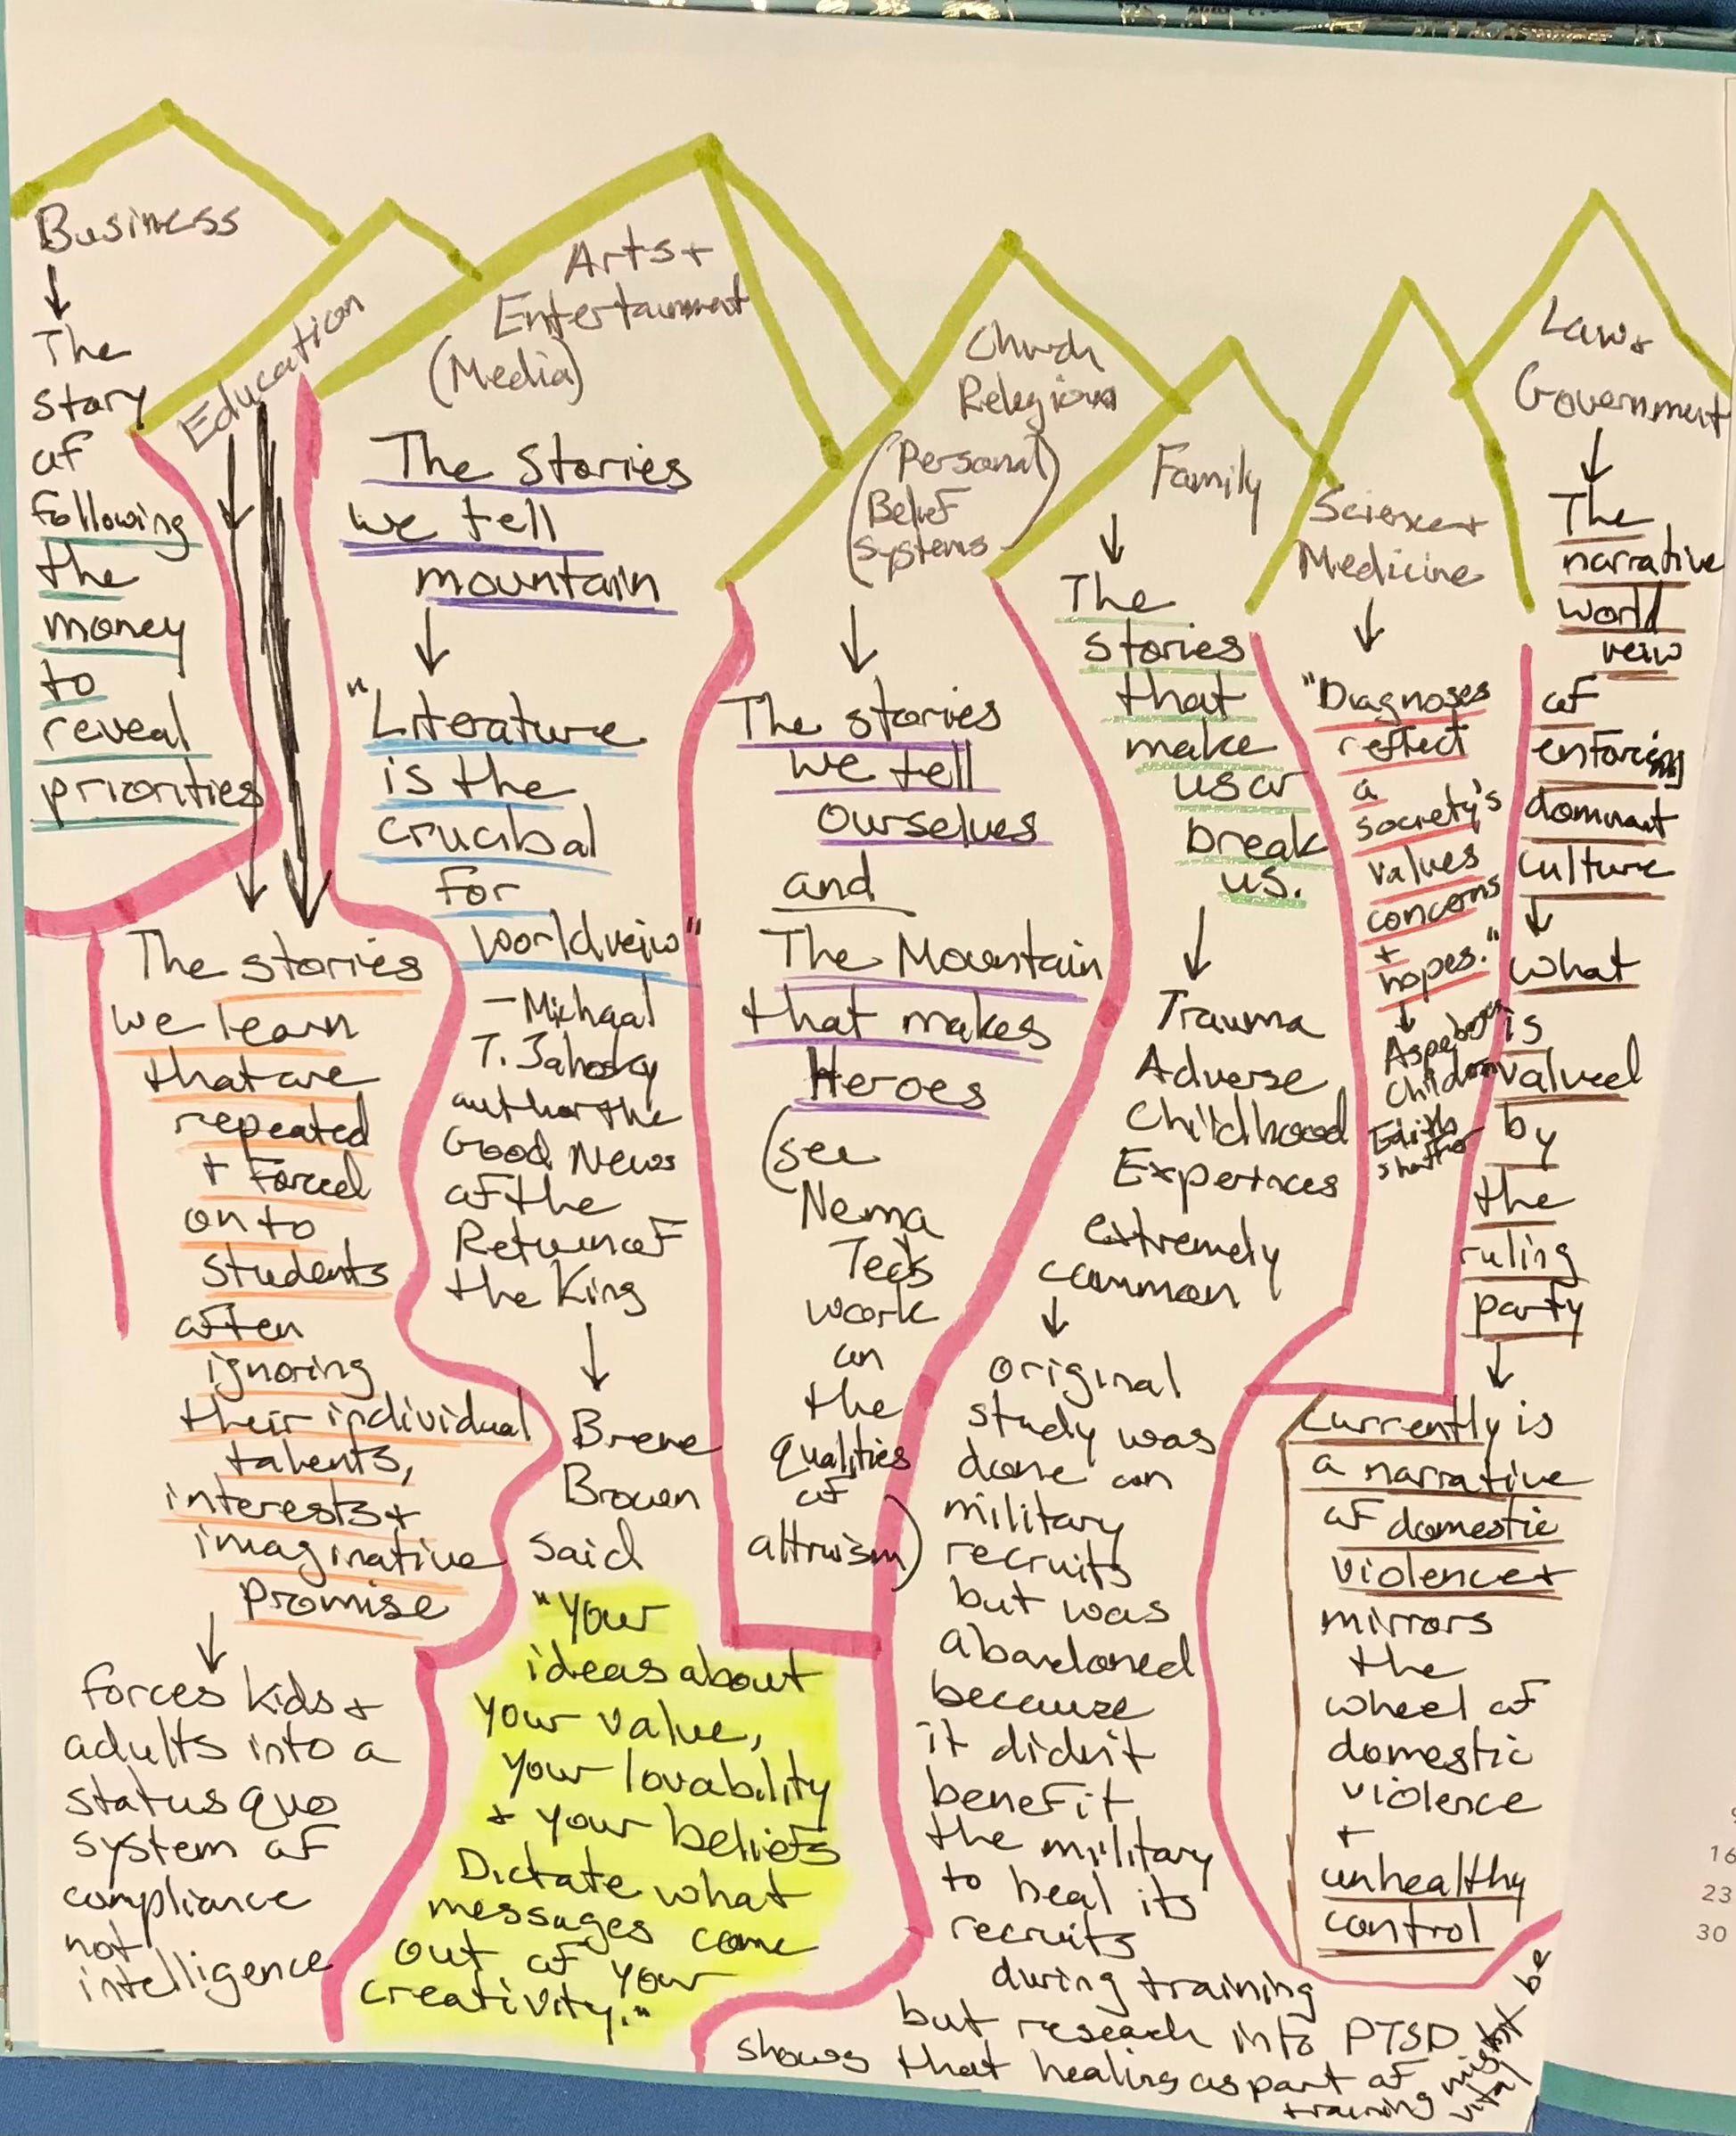 Business
The
story
of
following
the
money
to
reveal
priorities
Education
The stories
we learn
that are
repeated
+ Forced
on to
students
often
ignoring
their individual
talents,
interests +
imaginative
promise
forces kids +
adults into a
status quo
system of
compliance
not
intelligence
Arts +
Entertainment
(Media)
The Stories
we tell
mountain
"Literature
is the
crucibal
for
worldveiw"
- Michael
T. Jahosky
author the
Good News
of the
Return of
the King
Brene
Brown
said
"Your
ideas about
your value,
your lovability
+ your beliefs
Dictate what
messages come
out of your
creativity."
Church
Religions
(Personal
Belief
Systems)
The stories
we tell
ourselves
and
The Mountain
that makes
Heroes
(see
Nema
Tec's
work
on
the
qualities
of
altruism)
Family
The
stories
that
make
us or
break
us.
Trauma
Adverse
Childhood
Experinces
extremely
common
original
study was
done on
military
recruits
but was
abandoned
because
it didn't
benefit
the military
to heal its
recruits
during training
but reseach into PTSD
shows that healing as part of
training might be
vital
Science +
Medicine
"Diagnoses
reflect
a
society's
values
concerns
+
hopes."
Children
Edith
Law +
Government
The
narrative
world
veiw
of
enforcing
dominant
culture
what
is
valued
by
the
ruling
party
Currently is
a narrative
of domestic
violence +
mirrors
the
wheel of
domestic
violence
+
unhealthy
control
16
23
30